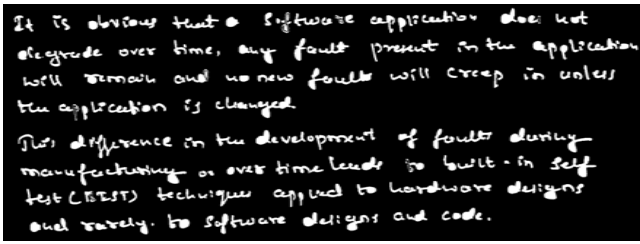 It is obvious that a software application does not
degrade over time, any fault present in the application
will remain and no new faults will creep in unless
the application is changed.
This difference in the development of faults during
manufacturing or over time leads to built-in self
test (BIST) techniques applied to hardware designs
and rarely. to software designs and code.